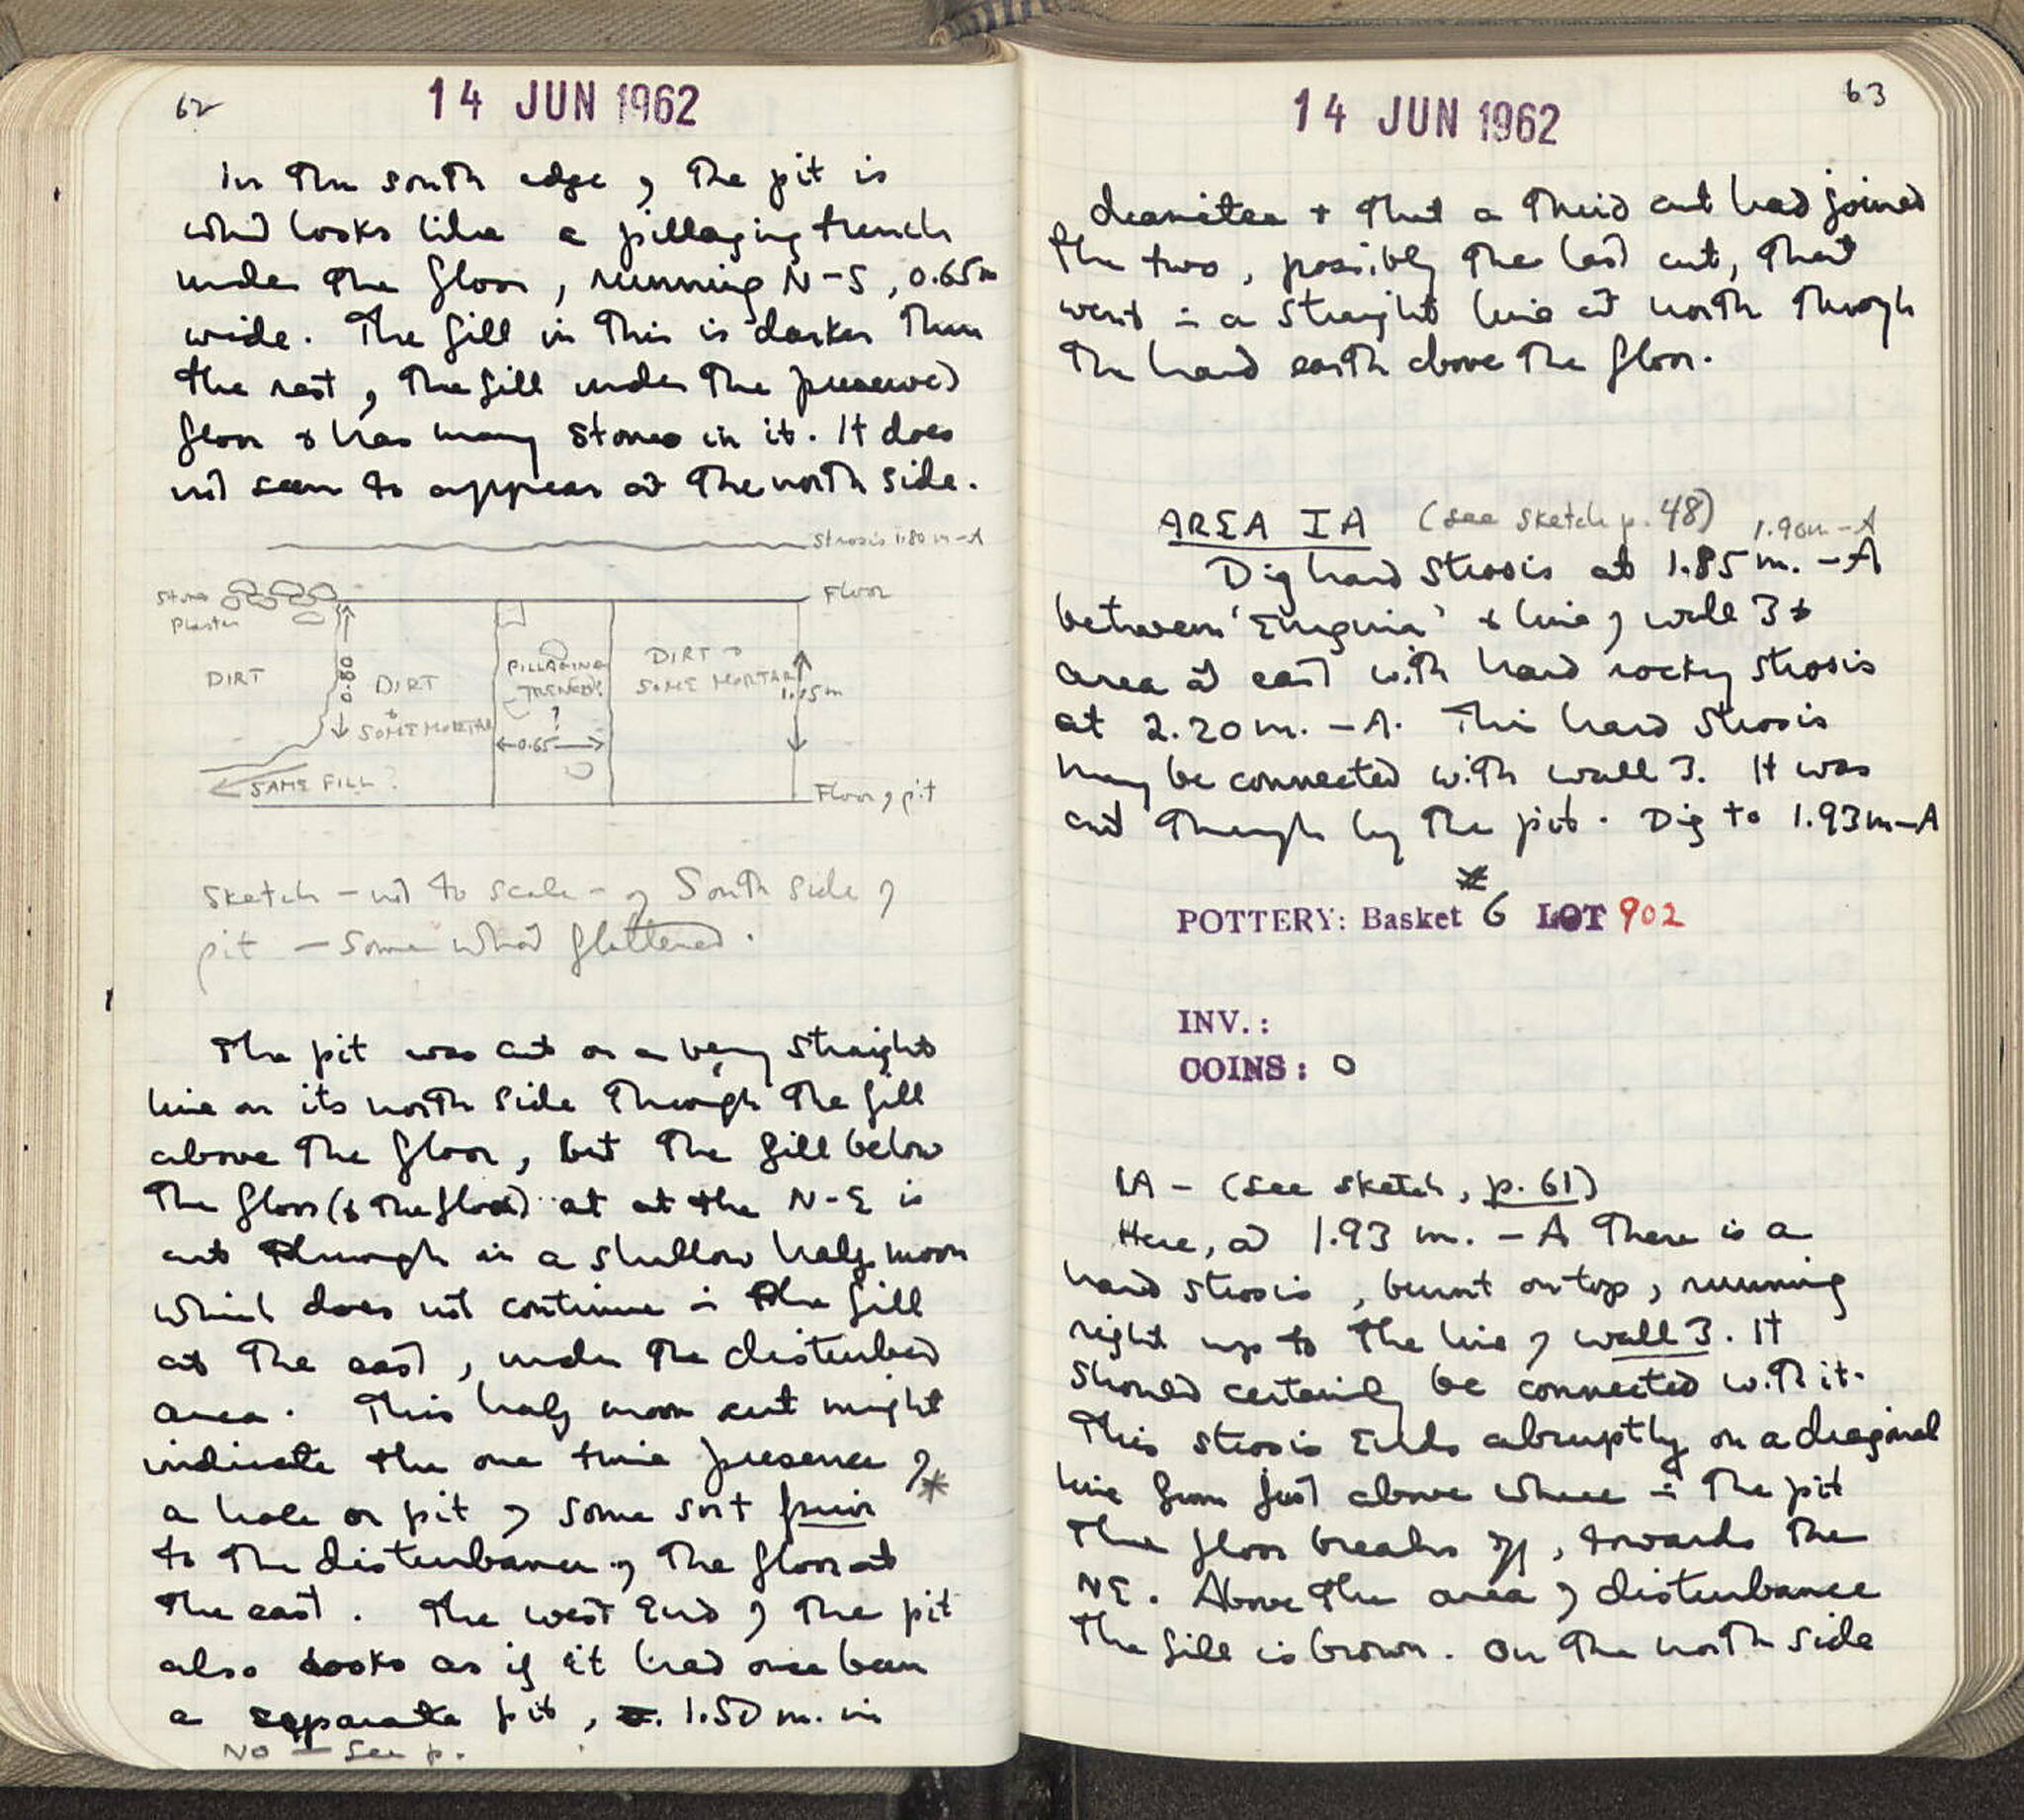 62
14 JUN 1962
In the south edge of the pit is
what looks like a pillaging trench
under the floor, running N-S, 0.65m
wide. The fill in this is darker than
the rest of the fill under the preserved
floor & has many stones in it. It does
not seem to appear at the north side.
Strosis 1.80 m -A
Stones
Plaster
Floor
DIRT
0.80
DIRT
+
SOME MORTAR
PILLAGING
TRENCH?
?
0.65
DIRT +
SOME MORTAR
SAME FILL?
Floor of pit
Sketch - not to scale - of South side of
pit - somewhat flattened.
The pit was cut on a very straight
line on its north side through the fill
above the floor, but the fill below
the floor (& the floor) at at the N-E is
cut through in a shallow half moon
which does not continue in the fill
at the east, under the disturbed
area. This half moon cut might
indicate the one time presence of *
a hole or pit of some sort prior
to the disturbance of the floor at
the east. The west end of the pit
also looks as if it had once been
a separate pit, 1.50 m. in
NO - See p.
63
14 JUN 1962
diameter + that a third cut had joined
the two, possibly the last cut, that
went in a straight line at north through
the hard earth above the floor.
AREA IA (see sketch p. 48) 1.90m -A
Dig hard strosis at 1.85 m. -A
between 'Enigma' & line of wall 3 &
area at east with hard rocky strosis
at 2.20 m. -A. This hard strosis
may be connected with wall 3. It was
cut through by the pit. Dig to 1.93m-A
POTTERY: Basket # 6 LOT 902
INV.:
COINS: 0
IA - (see sketch, p. 61)
Here, at 1.93 m. -A there is a
hard strosis, burnt on top, running
right up to the line of wall 3. It
should certainly be connected with it.
This strosis ends abruptly on a diagonal
line from just above where in the pit
the floor breaks off, towards the
NE. Above the area of disturbance
the fill is brown. On the north side